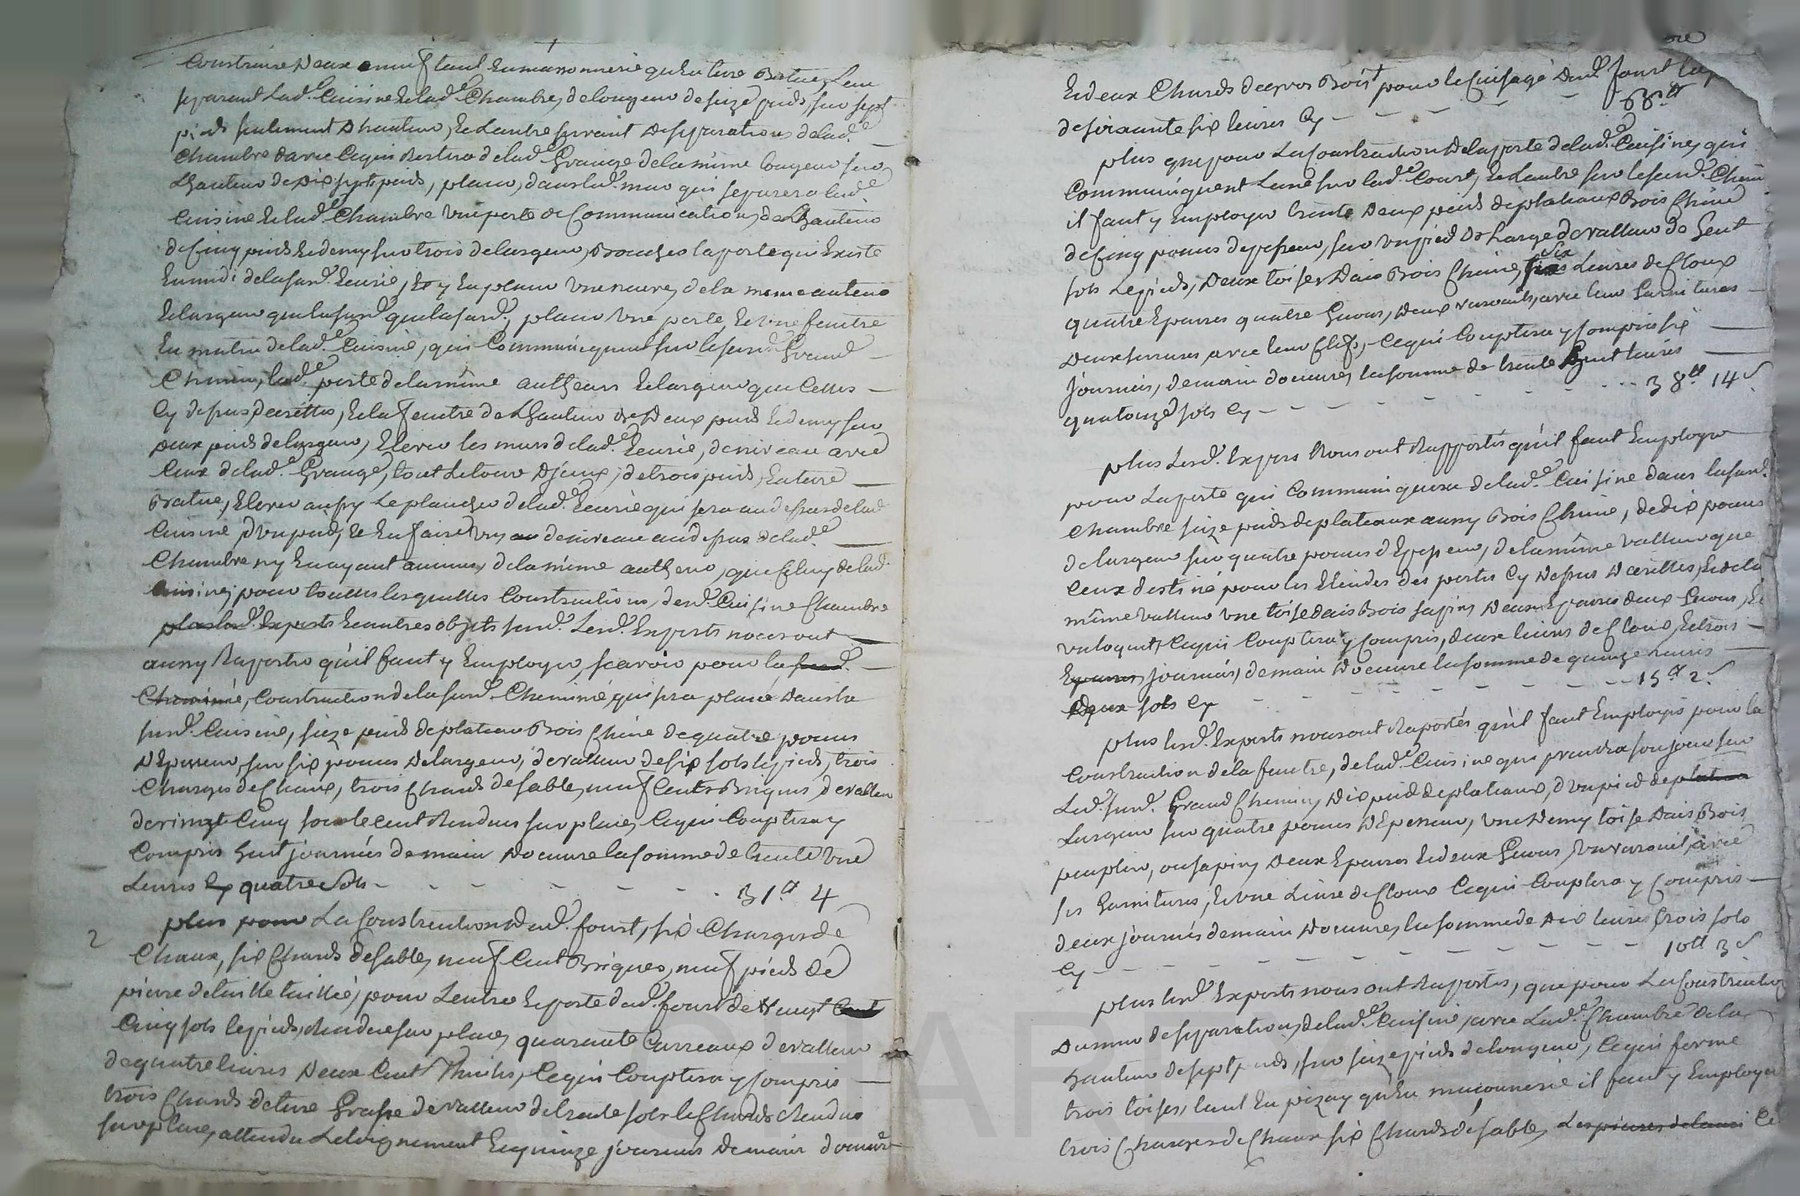 Construire Deux mur tant En maçonnerie qu'En tere Battue, L'un
separant Lad.e Cuisine de lad.e Chambre, de longeur de seize pieds, sur sept
pieds seulement d'hauteur, Et L'autre servant de separation de lad.e
Chambre d'avec Ce qui Restera de lad.e Grange de la même longeur sur
L'hauteur de dix sept pieds, placer, dans led. mur qui separera lad.e
Cuisine de lad.e Chambre une porte de Communication, de L'hauteur
de Cinq pieds Et demy sur trois de largeur, Boucher la porte qui Existe
En midi de la susd. Ecurie, Et y En placer une neuve, de la meme auteur
Et largeur que la susd. que la susd., placer une porte Et une fenêtre
En matin de lad.e Cuisine, qui Communiquent sur le susd. Grand
Chemin, lad.e porte de la même autheur Et largeur que Celles
Cy dessus decrittes, Et la fenêtre de L'hauteur de deux pieds Et demy sur
deux pieds de largeur, Elever les murs de lad.e Ecurie, de niveau avec
Ceux de lad.e Grange, tout Le tour d'jceux, de trois pieds, En tere
Batue, Elever aussy Le plancher de lad.e Ecurie qui sera au dessus de lad.
Cuisine, d'un pied, Et En faire un au de niveau au dessus de lad.e
Chambre n'y En ayant aucun, de la même autheur, que Celluy de lad.
Cuisine, pour touttes lesquelles Constructions, de sd. Cuisine Chambre
plus lesd. Experts Et autres objets susd. Lesd. Experts nous ont
aussy Raportés qu'il faut y Employer, scavoir pour la susd.
Cheminé, Construction de la susd. Cheminé qui sera placé Dans la
susd. Cuisine, seize pieds de plateau Bois Chêne de quatre pouces
d'Epesseur, sur six pouces de largeur, de valleur de six sols le pied, trois
Charges de Chaux, trois Chards de sable, neuf Cents Briques, de valleur
de vingt Cinq sous le cent Rendues sur place, Ce qui Couptera y
Compris huit journées de main d'oeuvre la somme de trente une
Livres Cy quatre sols - - - - - - - 31.ll 4
plus pour La Construction dud. fourt, six Charges de
2
Chaux, six Chards de sable, neuf Cent Briques, neuf pieds de
pierre de taille taillée, pour L'entrée Et porte dud. fourt de vingt Cent
Cinq sols le pied, Rendue sur place, quarante Carreaux de valleur
de quatre livres deux Cent Thuiles, Ce qui Couptera y Compris
trois Chards de tere Grasse de valleur de trente sols le Chards Rendue
sur place, attendu L'eloignement Et quinze journées de main d'oeuvre
Et deux Chards de gros Bois pour le Cuisage dud. fourt la
de soixante six livres Cy - - - - - - 66.ll
plus que pour La Construction de la porte de lad.e Cuisine, qui
Communiquent L'une sur lad.e Cour, Et L'autre sur le susd. Chem
il faut y Employer trente deux pieds de plateaux Bois Chêne
de Cinq pouces d'epesseur, sur un pied de Large de valleur de huit
sols Le pied, deux toises d'ais Bois Chêne, six Livres de Cloux
quatre Eparres quatre Guons, deux verouils, avec leur Garnitures
deux serrures, avec leur Clefs, Ce qui Couptera y Compris six
journées, de main d'oeuvre, la somme de trente huit livres
quatorze sols Cy - - - - - - - 38.ll 14 s
plus Lesd. Experts Nous ont Rapportés qu'il faut Employer
pour La porte qui Communiquera de lad.e Cuisine dans la susd.
Chambre seize pieds de plateaux aussy Bois Chêne, de dix pouces
de largeur sur quatre pouces d'Epesseur, de la même valleur que
Ceux destiné pour les Elindes des portes Cy dessus decrittes, Et de la
même valleur une toise d'ais Bois sapin, deux Eparres deux Guons, Et
un loquet, Ce qui Couptera y Compris, deux livres de Cloux, Et trois
Eparres journées, de main d'oeuvre la somme de quinze livres
deux sols Cy - - - - - - - - 15.ll 2 s
plus lesd. Experts nous ont Raportés qu'il faut Employer pour la
Construction de la fenêtre, de lad.e Cuisine qui prendra son jour sur
Led. susd. Grand Chemin, dix pieds de plateaux, d'un pied de plateau
Largeur sur quatre pouces d'Epesseur, une demy toise d'ais Bois
peuplier, ou sapin, deux Eparres Et deux Guons, un verouil, avec
ses Garnitures, Et une Livre de Cloux Ce qui Couptera y Compris
deux journées de main d'oeuvre, la somme de dix livres trois sols
Cy - - - - - - - - - 10ll 3 s
plus lesd. Experts nous ont Raportés, que pour La Construction
du mur de separation, de lad.e Cuisine, avec Lad.e Chambre de la
hauteur de sept pieds, sur seize pieds de longeur, Ce qui forme
trois toises, tant En pizay qu'En maçonnerie il faut y Employer
trois Charges de Chaux six Chards de sable, Les pierres de lanci Ce